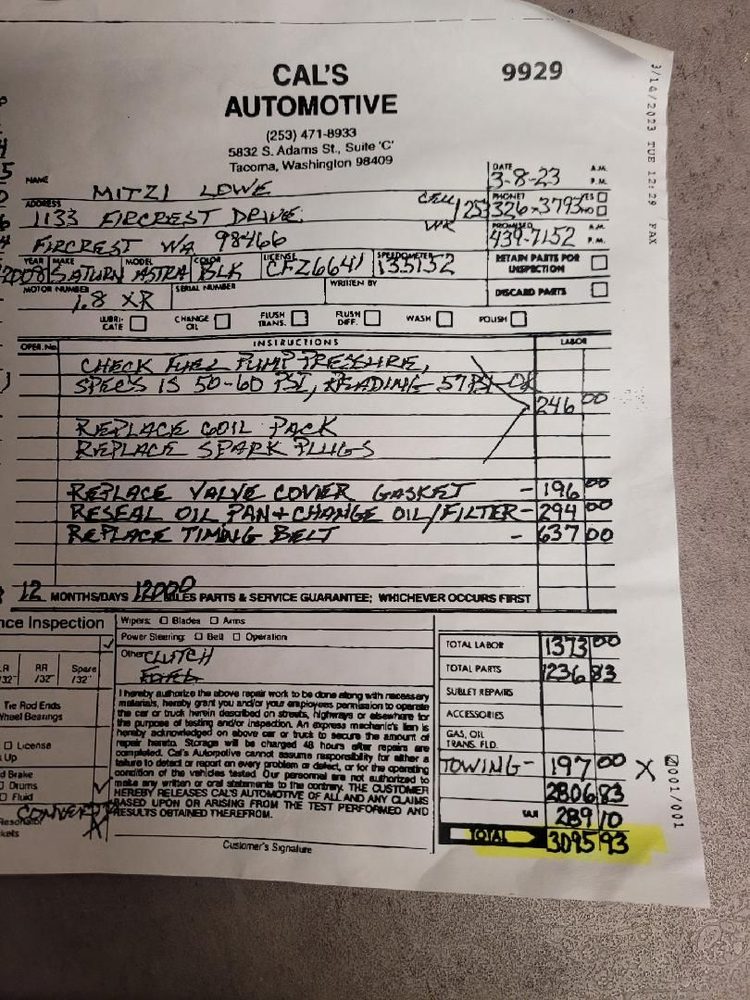 CAL'S
AUTOMOTIVE
9929
(253) 471-8933
5832 S. Adams St., Suite 'C'
Tacoma, Washington 98409
3/14/2023 TUE 12:29 FAX
NAME MITZI LOWE
DATE 3-8-23 A.M. P.M.
ADDRESS 1133 FIRCREST DRIVE
CELL 253 PHONE 326-3793 YES NO
FIRCREST WA 98466
WK PROMISED 439-7152 A.M. P.M.
YEAR MAKE MODEL COLOR LICENSE SPEEDOMETER
2008 SATURN ASTRA BLK CFZ6641 135152
RETAIN PARTS FOR INSPECTION
MOTOR NUMBER SERIAL NUMBER WRITTEN BY
1.8 XR
DISCARD PARTS
LUBRI-CATE CHANGE OIL FLUSH TRANS. FLUSH DIFF. WASH POLISH
OPER. No. INSTRUCTIONS LABOR
CHECK FUEL PUMP PRESSURE,
SPECS IS 50-60 PSI, READING 57PSI-OK
246 00
REPLACE COIL PACK
REPLACE SPARK PLUGS
REPLACE VALVE COVER GASKET - 196 00
RESEAL OIL PAN + CHANGE OIL/FILTER - 294 00
REPLACE TIMING BELT - 637 00
12 MONTHS/DAYS 12000 MILES PARTS & SERVICE GUARANTEE; WHICHEVER OCCURS FIRST
nce Inspection
Wipers: Blades Arms
Power Steering: Belt Operation
Other CLUTCH
RR Spare
/32" /32" /32"
Tie Rod Ends
Wheel Bearings
License
Up
d Brake
Drums
Fluid
CONVERT
Resonator
kets
I hereby authorize the above repair work to be done along with necessary
materials, hereby grant you and/or your employees permission to operate
the car or truck herein described on streets, highways or elsewhere for
the purpose of testing and/or inspection. An express mechanic's lien is
hereby acknowledged on above car or truck to secure the amount of
repair hereto. Storage will be charged 48 hours after repairs are
completed. Cal's Automotive cannot assume responsibility for either a
failure to detect or report on every problem or defect, or for the operating
condition of the vehicles tested. Our personnel are not authorized to
make any written or oral statements to the contrary. THE CUSTOMER
HEREBY RELEASES CAL'S AUTOMOTIVE OF ALL AND ANY CLAIMS
BASED UPON OR ARISING FROM THE TEST PERFORMED AND
RESULTS OBTAINED THEREFROM.
Customer's Signature
TOTAL LABOR 1373 00
TOTAL PARTS 1236 83
SUBLET REPAIRS
ACCESSORIES
GAS, OIL
TRANS. FLD.
TOWING - 197 00 X
2806 83
TAX 289 10
TOTAL 3095 93
001/001